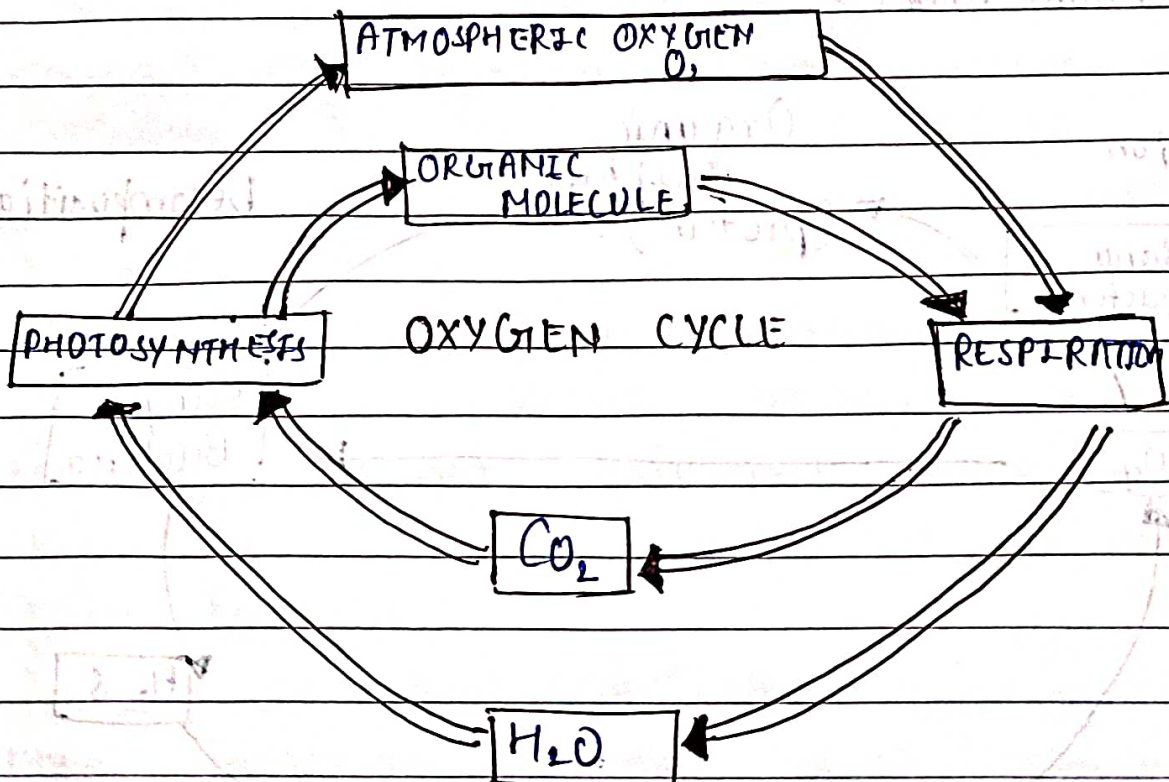 ATMOSPHERIC OXYGEN
O₂
ORGANIC
MOLECULE
PHOTOSYNTHESIS
OXYGEN CYCLE
RESPIRATION
CO₂
H₂O